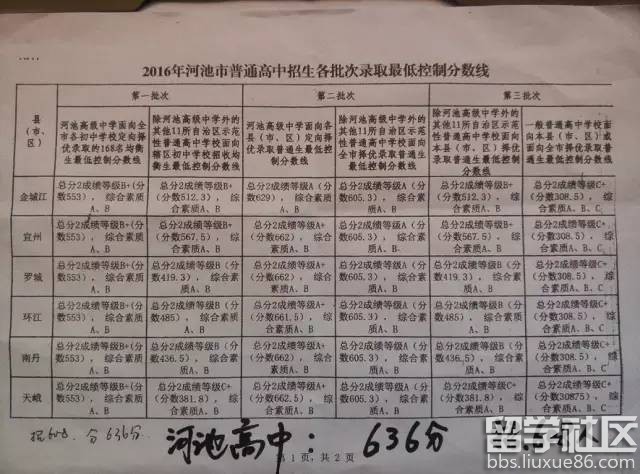 2016年河池市普通高中招生各批次录取最低控制分数线
县(市、区)
第一批次
第二批次
第三批次
河池高级中学面向全市各初中学校定向择优录取的168名均衡生最低控制分数线
除河池高级中学外的其他11所自治区示范性普通高中学校面向辖区初中学校招收均衡生最低控制分数线
河池高级中学面向各县(市、区)定向择优录取普通生最低控制分数线
除河池高级中学外的其他11所自治区示范性普通高中学校面向全市择优录取普通生最低控制分数线
除河池高级中学外的其他11所自治区示范性普通高中学校面向本县(市、区)择优录取普通生最低控制分数线
一般普通高中学校面向本县(市、区)或面向全市择优录取普通生最低控制分数线
金城江
总分2成绩等级B+(分数553),综合素质A、B
总分2成绩等级B+(分数512.3),综合素质A、B
总分2成绩等级A(分数629),综合素质A、B
总分2成绩等级A(分数605.3),综合素质A、B
总分2成绩等级B+(分数512.3),综合素质A、B
总分2成绩等级C+(分数308.5),综合素质A、B、C
宜州
总分2成绩等级B+(分数553),综合素质A、B
总分2成绩等级B+(分数567.5),综合素质A、B
总分2成绩等级A+(分数662),综合素质A、B
总分2成绩等级A(分数605.3),综合素质A、B
总分2成绩等级B+(分数567.5),综合素质A、B
总分2成绩等级C+(分数308.5),综合素质A、B、C
罗城
总分2成绩等级B+(分数553),综合素质A、B
总分2成绩等级B(分数419.3),综合素质A、B
总分2成绩等级A+(分数662),综合素质A、B
总分2成绩等级A(分数605.3),综合素质A、B
总分2成绩等级B(分数419.3),综合素质A、B
总分2成绩等级C+(分数308.5),综合素质A、B、C
环江
总分2成绩等级B+(分数553),综合素质A、B
总分2成绩等级B(分数485),综合素质A、B
总分2成绩等级A+(分数661.5),综合素质A、B
总分2成绩等级A(分数605.3),综合素质A、B
总分2成绩等级B(分数485),综合素质A、B
总分2成绩等级C+(分数308.5),综合素质A、B、C
南丹
总分2成绩等级B+(分数553),综合素质A、B
总分2成绩等级B(分数436.5),综合素质A、B
总分2成绩等级A+(分数662),综合素质A、B
总分2成绩等级A(分数605.3),综合素质A、B
总分2成绩等级B(分数436.5),综合素质A、B
总分2成绩等级C+(分数308.5),综合素质A、B、C
天峨
总分2成绩等级B+(分数553),综合素质A、B
总分2成绩等级C+(分数381.8),综合素质A、B
总分2成绩等级A(分数605.3),综合素质A、B
总分2成绩等级A(分数605.3),综合素质A、B
总分2成绩等级C+(分数381.8),综合素质A、B
总分2成绩等级C+(分数30875),综合素质A、B、C
分636分.
河池高中: 636分
第1页,共2页
留学社区
bbs.liuxue86.com